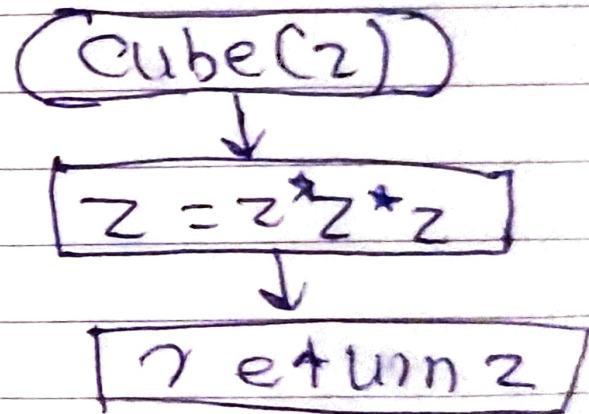 Cube(z)
z = z*z*z
return z